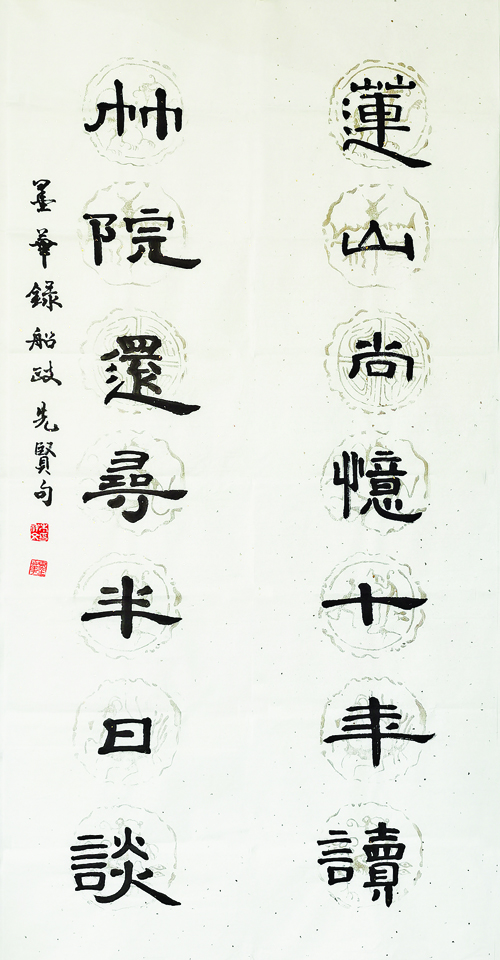 蓮山尚憶十年讀
竹院還尋半日談
墨華録船政先賢句